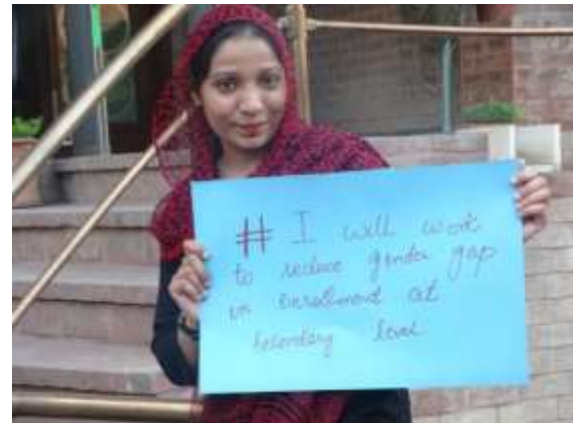 # I will work
to reduce gender gap
in enrollment at
secondary level